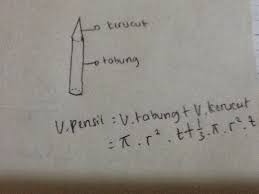 kerucut
tabung
V.pensil = V.tabung + V.kerucut
= π . r² . t + 1/3 . π . r² . t